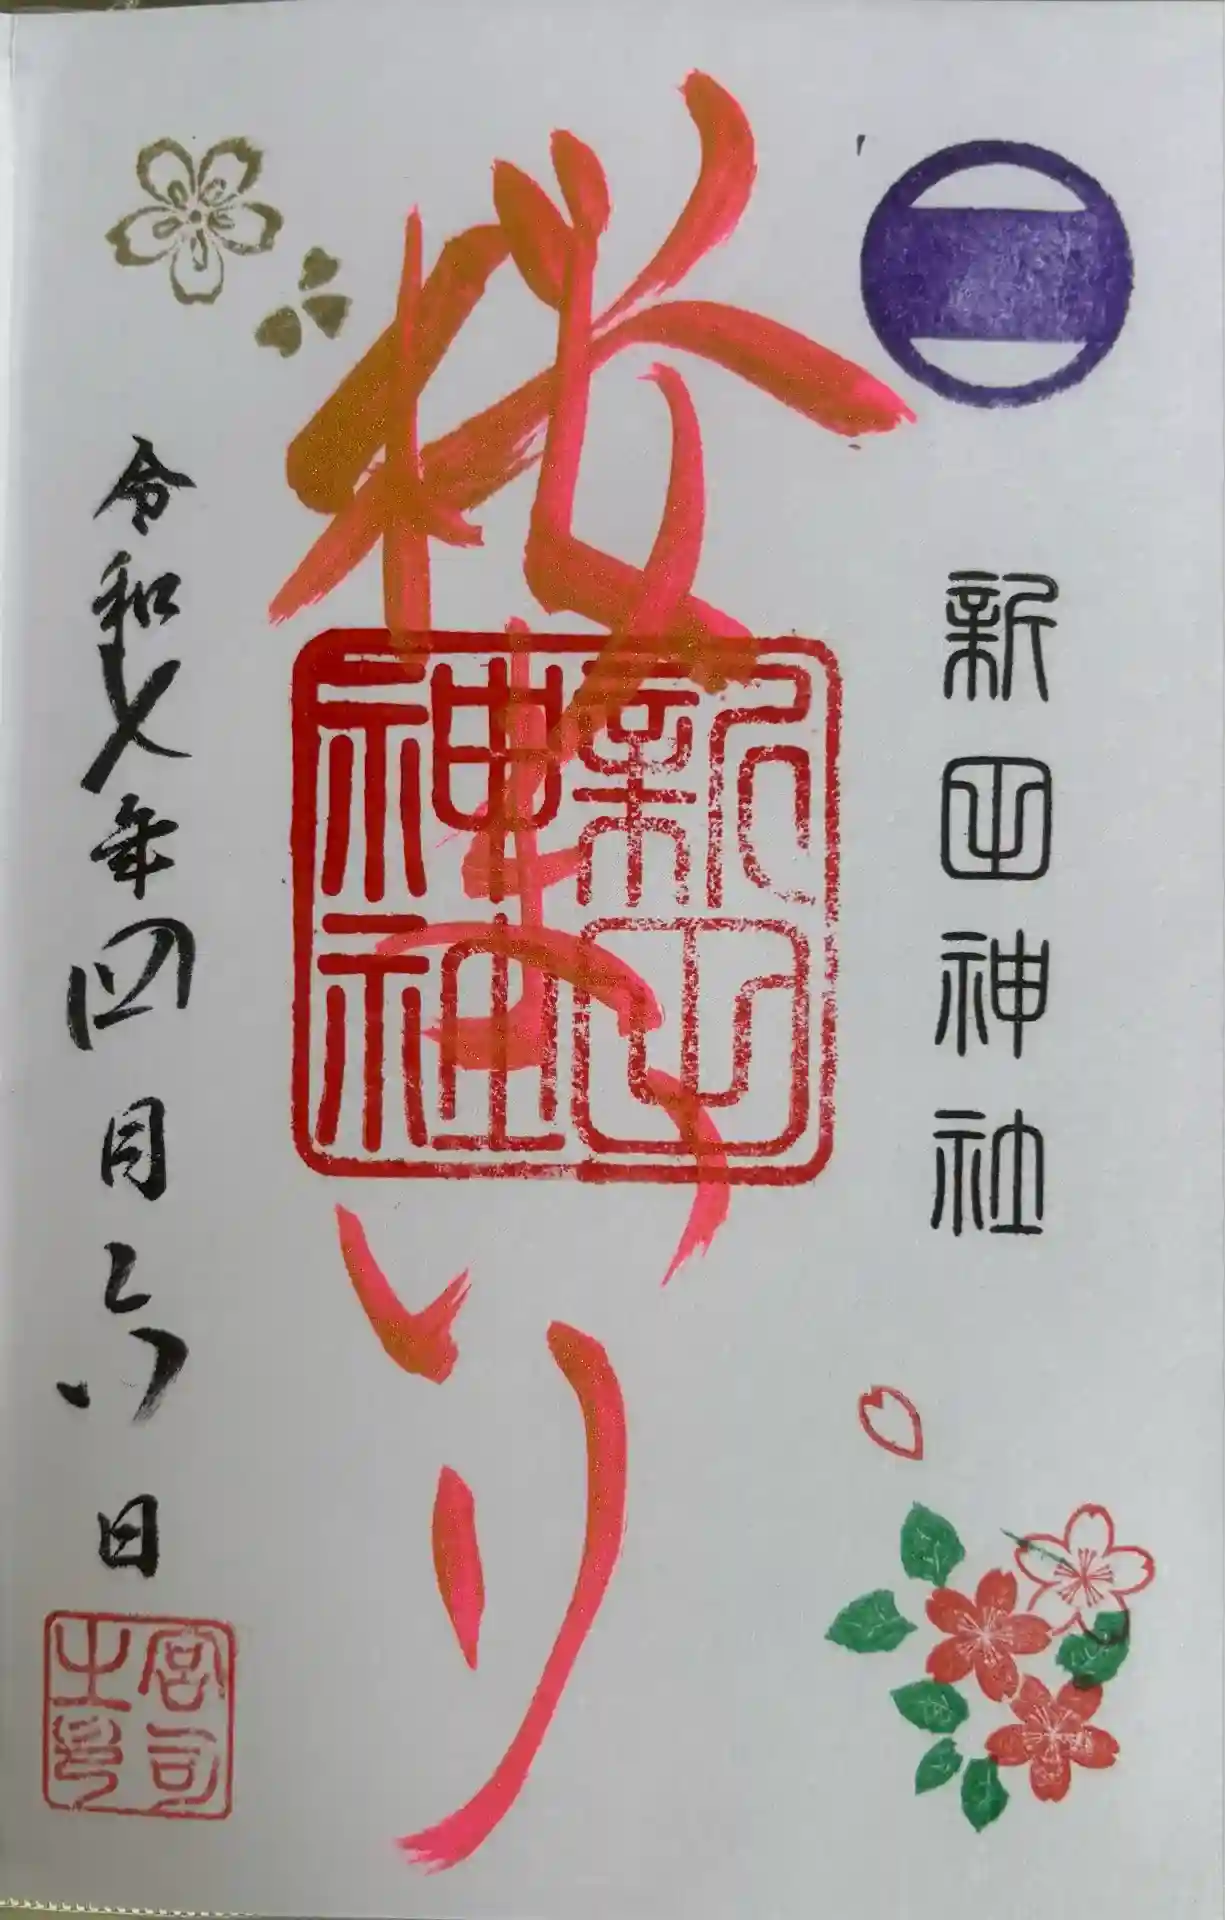 新田神社
桜まつり
新田神社
令和七年四月六日
宮司之印